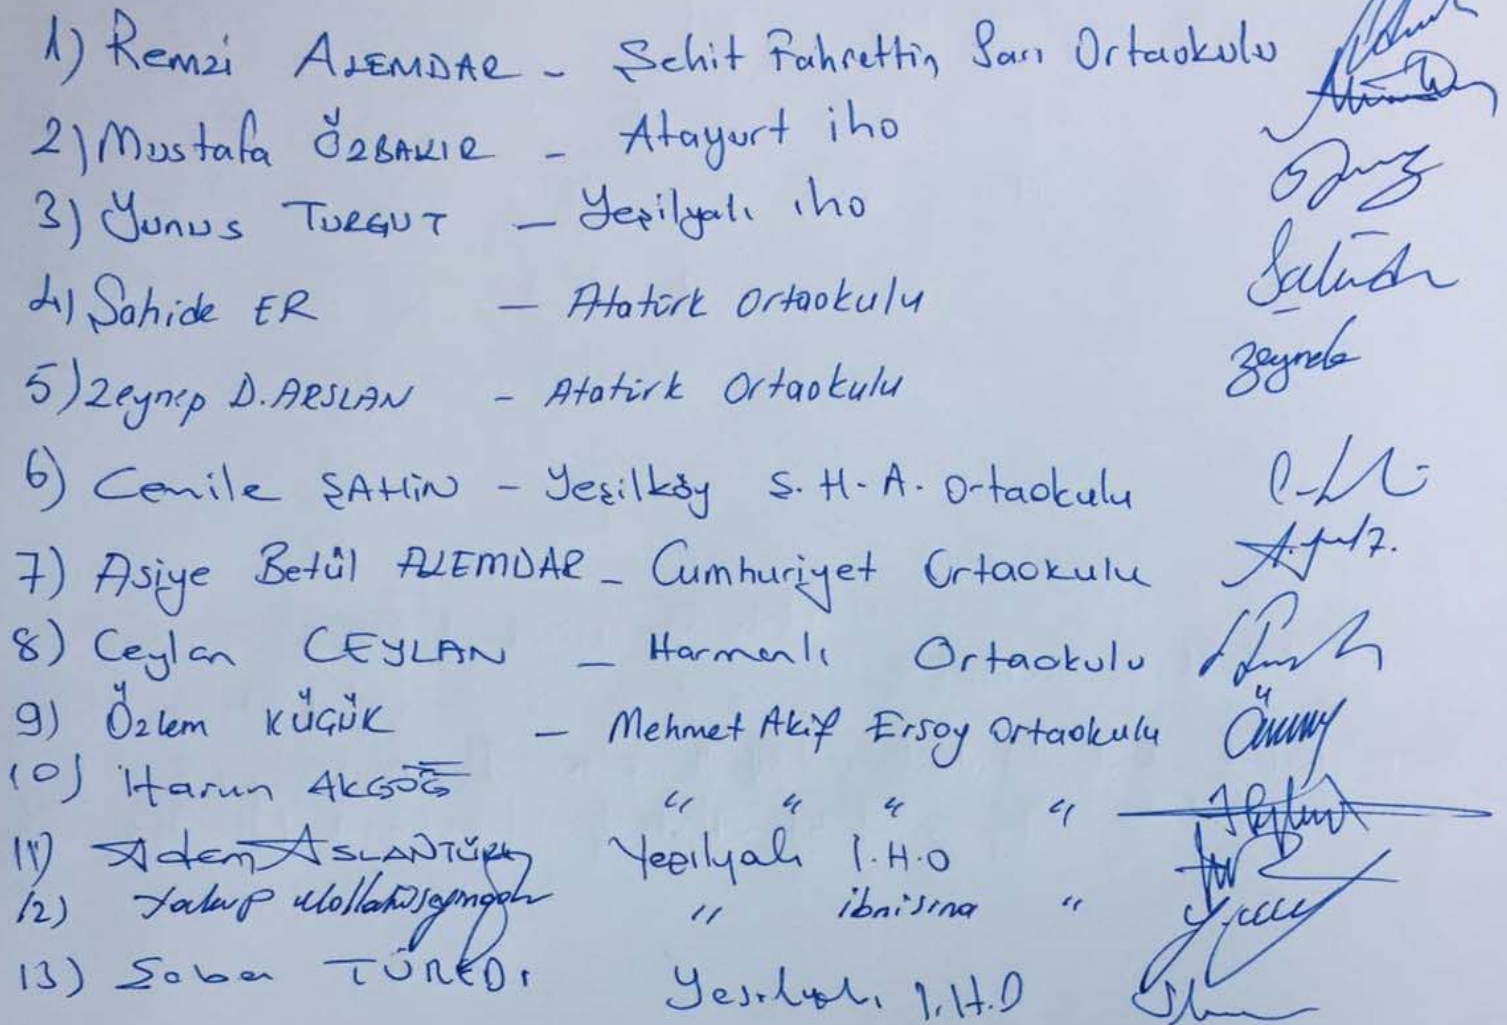 1) Remzi ALEMDAR - Şehit Fahrettin Sarı Ortaokulu
2) Mustafa ÖZBAKIR - Atayurt iho
3) Yunus TURGUT - Yeşilyalı iho
4) Şahide ER - Atatürk Ortaokulu
5) Zeynep D. ARSLAN - Atatürk Ortaokulu Zeyneb
6) Cemile ŞAHİN - Yeşilköy Ş. H. A. Ortaokulu
7) Asiye Betül ALEMDAR - Cumhuriyet Ortaokulu
8) Ceylan CEYLAN - Harmanlı Ortaokulu
9) Özlem KÜÇÜK - Mehmet Akif Ersoy Ortaokulu
10) Harun AKGÖĞ " " " "
11) Adem ASLANTÜRK Yeşilyalı İ.H.O
12) Yakup " ibnisina "
13) Şaban TÜREDİ Yeşilyalı İ.H.O